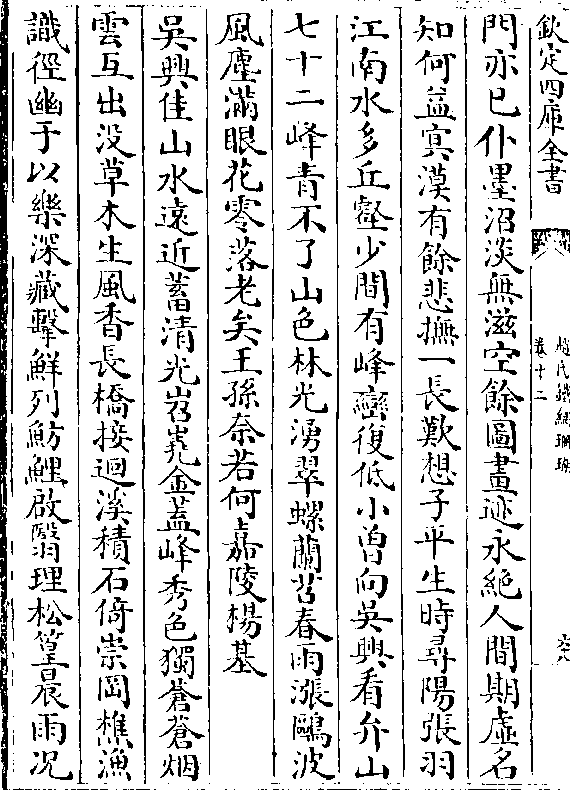 欽定四庫全書
趙氏鐵網珊瑚
卷十二
六八
門亦已仆墨沼淡無滋空餘圖畫迹永絶人間期虚名
知何益寘漠有餘悲撫一長歎想子平生時尋陽張羽
江南水多丘壑少間有峰巒復低小曽向吳興看弁山
七十二峰青不了山色林光湧翠螺蘭苕春雨漲鷗波
風塵滿眼花零落老矣王孫奈若何嘉陵楊基
吳興佳山水遠近蓄清光岧嶤金葢峰秀色獨蒼蒼烟
雲互出没草木生風香長橋接迴溪積石倚崇岡樵漁
識徑幽于以樂深藏擊鮮列魴鯉啟翳理松篁晨雨况